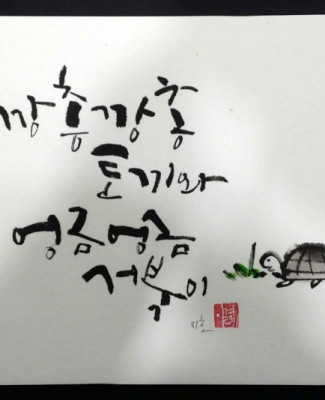 깡충깡충
토끼와
엉금엉금
거북이